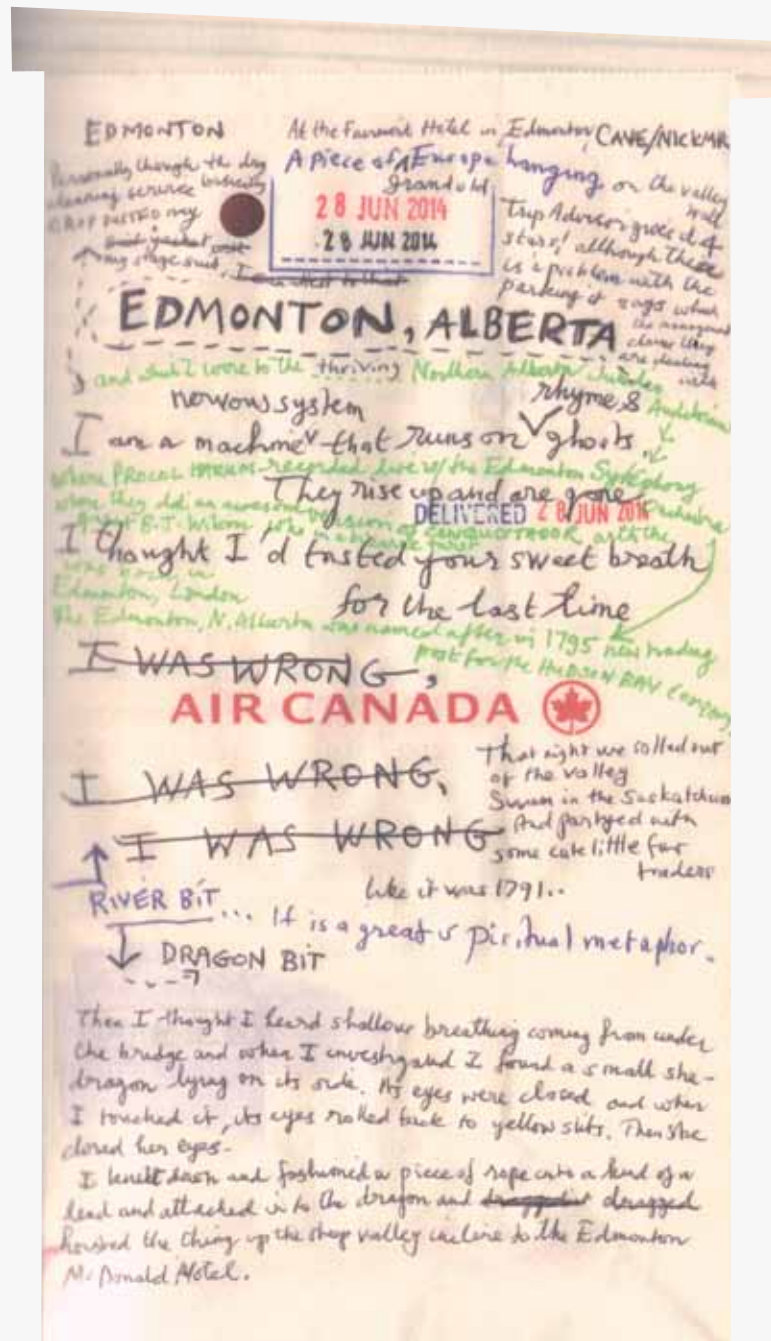 EDMONTON
At the Fairmont Hotel in Edmonton, CAVE/NICKMR
A piece of Europe hanging on the valley wall
grand old
Personally though the dry
cleaning service
my
my stage suit.
28 JUN 2014
28 JUN 2014
Trip Advisor gives it 4
stars! although there
is a problem with the
parking it says which
the
claims they
are dealing
with
EDMONTON, ALBERTA
and which I wore to the thriving Northern Alberta Jubilee
Auditorium
nervous system
rhyme &
I am a machine that runs on ghosts.
where PROCOL HARUM recorded live w/ the Edmonton Symphony
Orchestra
They rise up and are gone
where they did an awesome version of CONQUISTADOR with the
DELIVERED 28 JUN 2014
B.J. Wilson who
I thought I'd tasted your sweet breath
was born in
Edmonton, London
for the last time
The Edmonton, N. Alberta was named after in 1795 new trading
post for the HUDSON BAY Company
I WAS WRONG,
AIR CANADA
I WAS WRONG,
I WAS WRONG
That night we rolled out
of the valley
Swam in the Saskatchewan
And partyed with
some cute little fur
traders
like it was 1791..
RIVER BIT... It is a great spiritual metaphor.
DRAGON BIT
Then I thought I heard shallow breathing coming from under
the bridge and when I investigated I found a small she-
dragon lying on its side. Its eyes were closed and when
I touched it, its eyes rolled back to yellow slits. Then she
closed her eyes.
I knelt down and fashioned a piece of rope into a kind of a
lead and attached it to the dragon and dragged
hoisted the thing up the steep valley incline to the Edmonton
McDonald Hotel.